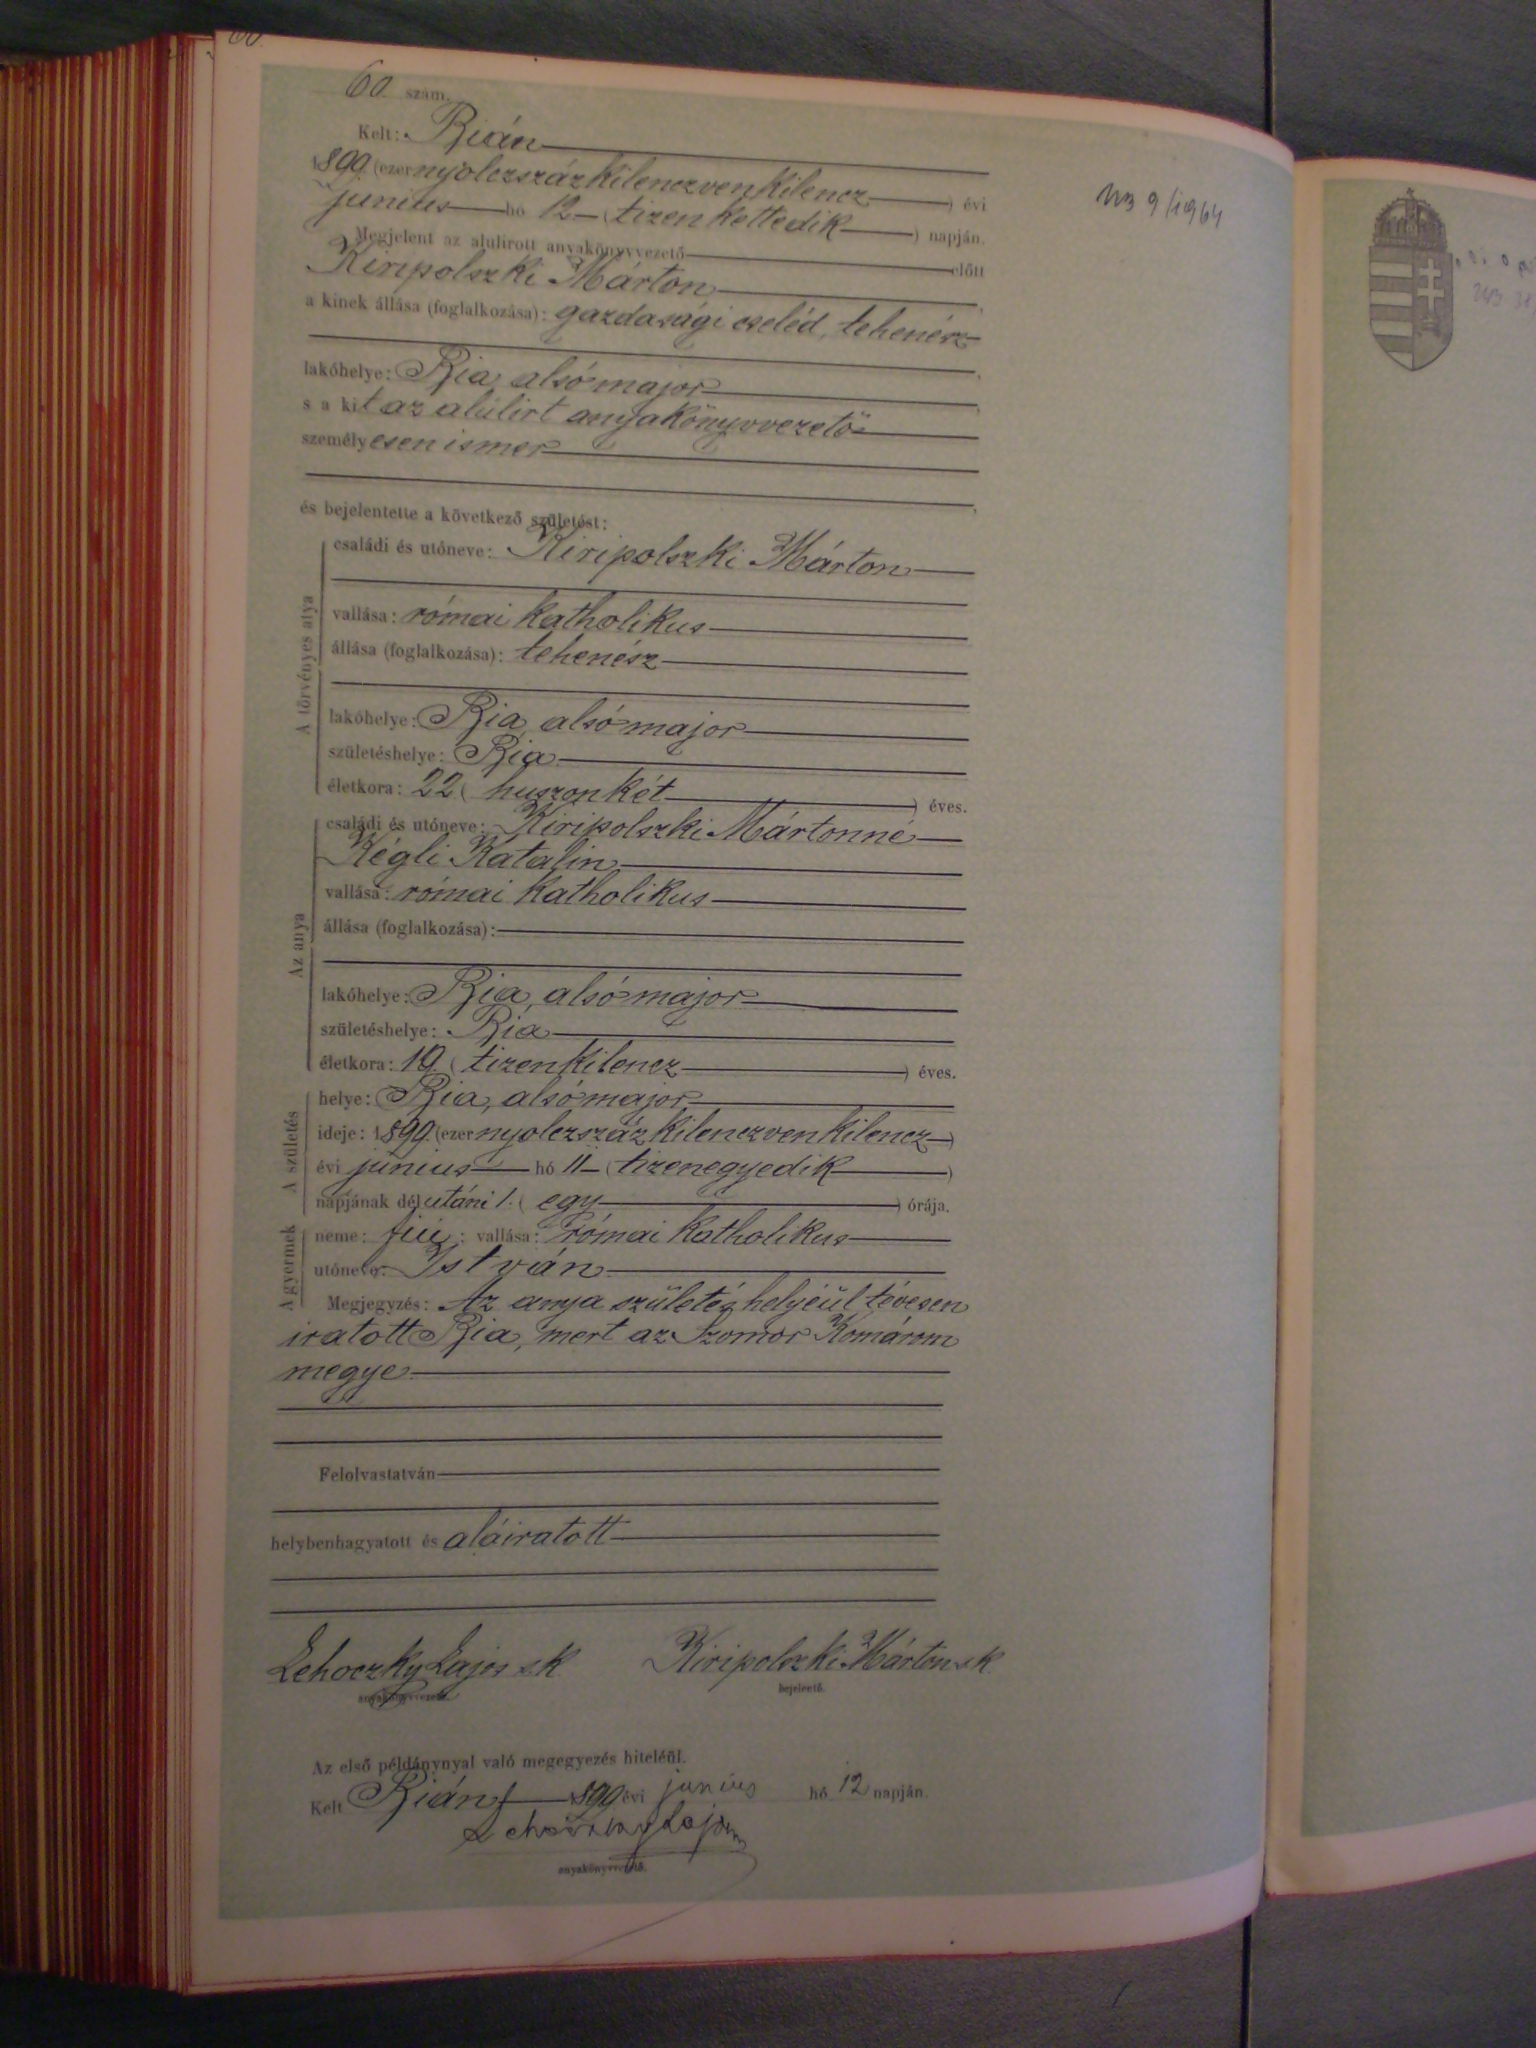 60
60 szám.
Kelt: Bián
1899. (ezer nyolczszáz kilenczven kilencz) évi
junius hó 12 (tizenkettedik) napján.
Megjelent az alulirott anyakönyvvezető előtt
Kiripolszki Márton
a kinek állása (foglalkozása): gazdasági cseléd, tehenész
lakóhelye: Bia, alsó major
s a kit az alúlirt anyakönyvvezető
személyesen ismer
és bejelentette a következő születést:
A törvényes atya
családi és utóneve: Kiripolszki Márton
vallása: római katholikus
állása (foglalkozása): tehenész
lakóhelye: Bia, alsó major
születéshelye: Bia
életkora: 22 (huszonkét) éves.
Az anya
családi és utóneve: Kiripolszki Mártonné
Kégli Katalin
vallása: római katholikus
állása (foglalkozása):
lakóhelye: Bia, alsó major
születéshelye: Bia
életkora: 19 (tizenkilencz) éves.
A születés
helye: Bia, alsó major
ideje: 1899. (ezer nyolczszáz kilenczven kilencz)
évi junius hó 11 (tizenegyedik)
napjának délutáni 1. (egy) órája.
A gyermek
neme: fiú; vallása: római katholikus
utóneve: István
Megjegyzés: Az anya születés helyéül tévesen
iratott Bia, mert az Szomor Komárom
megye
Felolvastatván
helybenhagyatott és aláiratott
Lehoczky Lajos sk
anyakönyvvezető.
Kiripolszki Márton sk
bejelentő.
Az első példánynyal való megegyezés hiteléül.
Kelt Bián 1899 évi junius hó 12 napján.
Lehoczky Lajos
anyakönyvvezető.
9/1964